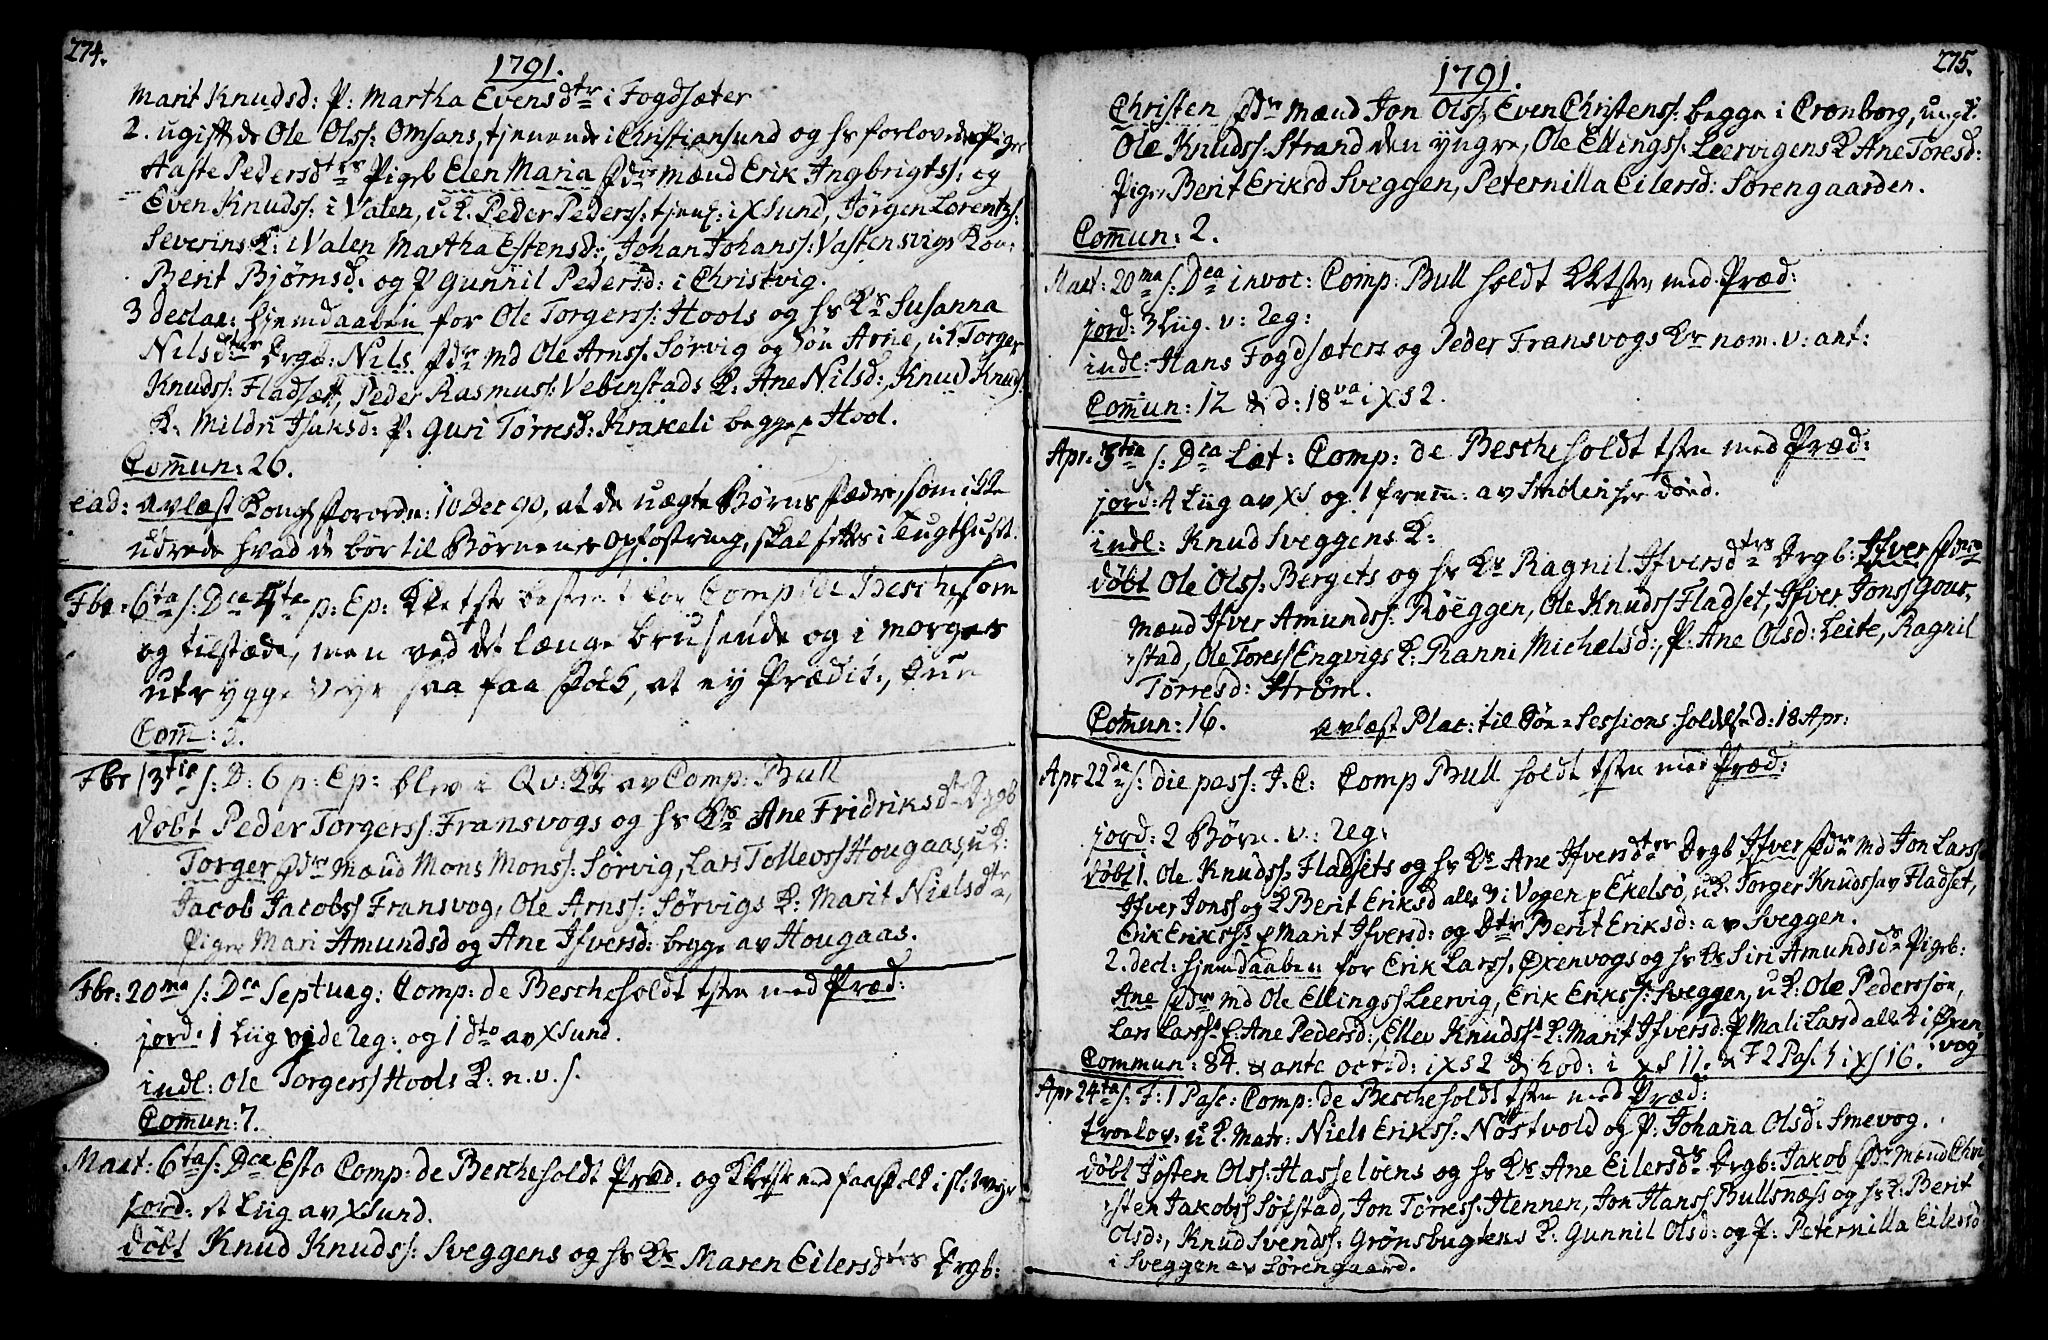 274.
1791.
Marit Knudsd: P: Martha Evensdtr i Fogdsæter
2. ugifte Ole Olss: Omsans, tjenende i Christiansund og hs forlovede Pige
Aaste Pedersdtrs Pigeb Elen Maria Fdre Mænd Erik Ingbrigtss: og
Even Knudss: i Valen, uK. Peder Pederss: tjen: i XSund, Jørgen Lorentzs:
Severins K: i Valen Martha Estensd:, Johan Johanss: Vastensvigs Kone
Berit Bjørnsd. og P Gunnil Pedersd: i Christvig.
3 declar: hjemdaaben for Ole Torgerss: Hools og hs Ks Susanna
Nilsdtrs Drgb: Nils Fdre Md Ole Arnss: Sørvig og Søn Arne, uK Torger
Knudss: Fladsæt, Peder Rasmuss: Vebenstads K. Ane Nilsd:, Knud Knuds
K. Mildri Isaksd: P. Guri Torresd: Krakeli begge p Hool.
Comun: 26.
ead: avlæst Kongl Forordn: 10 Dec 90, at de uægte Børns Fædre, som ikke
udrede hvad de bør til Børnenes Opfostring, skal settes i Tugthuset.
Fbr: 6ta s: Dca 5ta p: Ep: Kketste bestemt for Comp: de Besche, som
og tilstæde, men ved det længe brusende og i morges
utrygge Veyr saa faa Folk, at ey Prædik:, kun
Com: 5.
Fbr 13tia s: D: 6 p: Ep: blev i Qv: KK av Comp: Bull
døbt Peder Torgerss: Fransvogs og hs Ks Ane Fridriksdtr Drgb
Torger Fdre Mænd Mons Monss: Sørvig, Lars Tollevss Hougaas, uK:
Jacob Jacobss Fransvog, Ole Arnss: Sørvigs K: Marit Nielsdtr,
Piger Mari Amundsd og Ane Ifversd: begge av Hougaas.
Fbr: 20ma s: Dca Septuag: Comp: de Besche holdt tsten med Præd:
jord: 1 Liig vide leg: og 1 dto av XSund.
indl: Ole Torgerss Hools K. n. v. s.
Comun: 7.
Mart: 6ta s: Dca Esto Comp: de Besche holdt Præd. og Kketste med faa Folk i
jord: et Liig av XSund.
døbt Knud Knudss: Sveggens og hs Ks Maren Eilersdtrs Drgb:
275.
1791.
Christen Fdre Mænd Jon Olss, Even Christenss: begge i Cronborg, ungk:
Ole Knudss: Strand den yngre, Ole Ellingss: Leervigens K Ane Toresd:
Piger Berit Eriksd Sveggen, Peternilla Eilersd: Sørengaarden.
Comun: 2.
Mart: 20ma s: Dca invoc: Comp: Bull holdt Kketste med Præd:
jord: 3 Liig. v: leg:
indl: Hans Fogdsæters og Peder Fransvogs Kr nom. v: ant:
Comun: 12 & d: 18va i XS 2.
Apr: 3tia s: Dca Læt: Comp: de Besche holdt tsten med Præd:
jord: 4 Liig av XS og 1 frem: av Smølen her død.
indl: Knud Sveggens K:
døbt Ole Olss: Bergets og hs Ks Ragnil Ifversdtrs Drgb: Ifver Fdre
Mænd Ifver Amundss: Røeggen, Ole Knudss Fladset, Ifver Jonss Gour-
stad, Ole Toress Engvigs K: Ranni Michelsd:, P: Ane Olsd: Leite, Ragnil
Torresd: Strøm.
Comun: 16. avlæst Plac: til Søe Sessions holdelse d: 18 Apr:
Apr 22da s: die pass: J. C: Comp Bull holdt tsten med Præd:
jord: 2 Børn. v: leg:
døbt 1. Ole Knudss Fladsets og hs Ks Ane Ifversdtrs Drgb Ifver Fdre Md Jon Larss
Ifver Jonss og K Berit Eriksd alle 3 i Vogen p Ekelsø, uK. Torger Knudss av Fladset,
Erik Erikss: P Marit Ifversd: og Dtr Berit Eriksd: av Sveggen.
2. decl: hjemdaaben for Erik Larss: Øxenvogs og hs Ks Siri Amundsds Pigeb:
Ane Fdre Md Ole Ellingss Leervig, Erik Erikss: Sveggen, uK: Ole Pederssøn,
Lars Larss K: Ane Pedersd:, Ellev Knudss K: Marit Ifversd: P Mali Larsd alle i Øxen
vog
Commun: 84. & ante octid: i XS 2 & hod: i XS 11. & F 2 Pasch i XS 16.
Apr 24ta s: F: 1 Pasc: Comp: de Besche holdt tsten med Præd:
troelov. uK. Matr: Niels Erikss: Nostvold og P: Johana Olsd: Smevog.
døbt Josten Olss: Hasseløens og hs Ks Ane Eilersds Drgb: Jakob Fdre Mænd Chri
sten Jakobss Søfstad, Jon Torress: Hennen, Jon Hanss Bullsnæss og hs K: Berit
Olsd:, Knud Svendss: Grønsbugtens K: Gunnil Olsd: og P: Peternilla Eilersd
i Sveggen av Sørengaard.